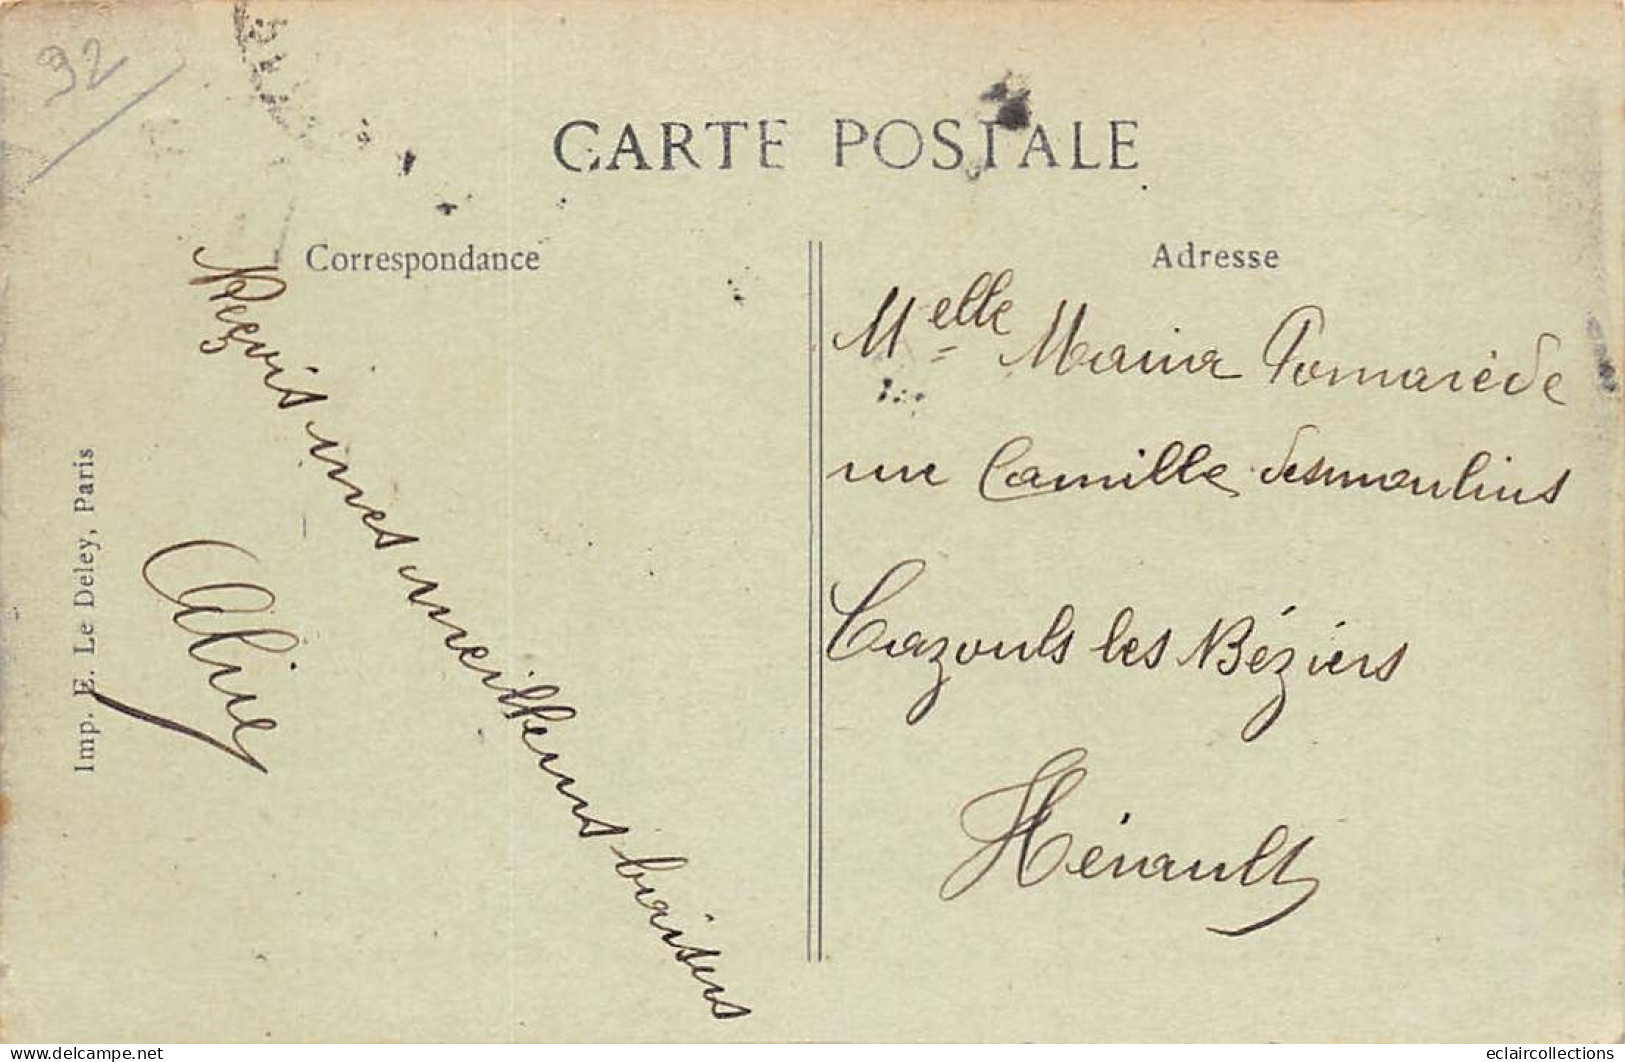 92
CARTE POSTALE
Correspondance
Reçois mes meilleurs baisers
Aline
Imp. E. Le Deley, Paris
Adresse
Melle Maria Pomarède
rue Camille desmoulins
Cazouls les Béziers
Hérault
delcampe.net
eclaircollections